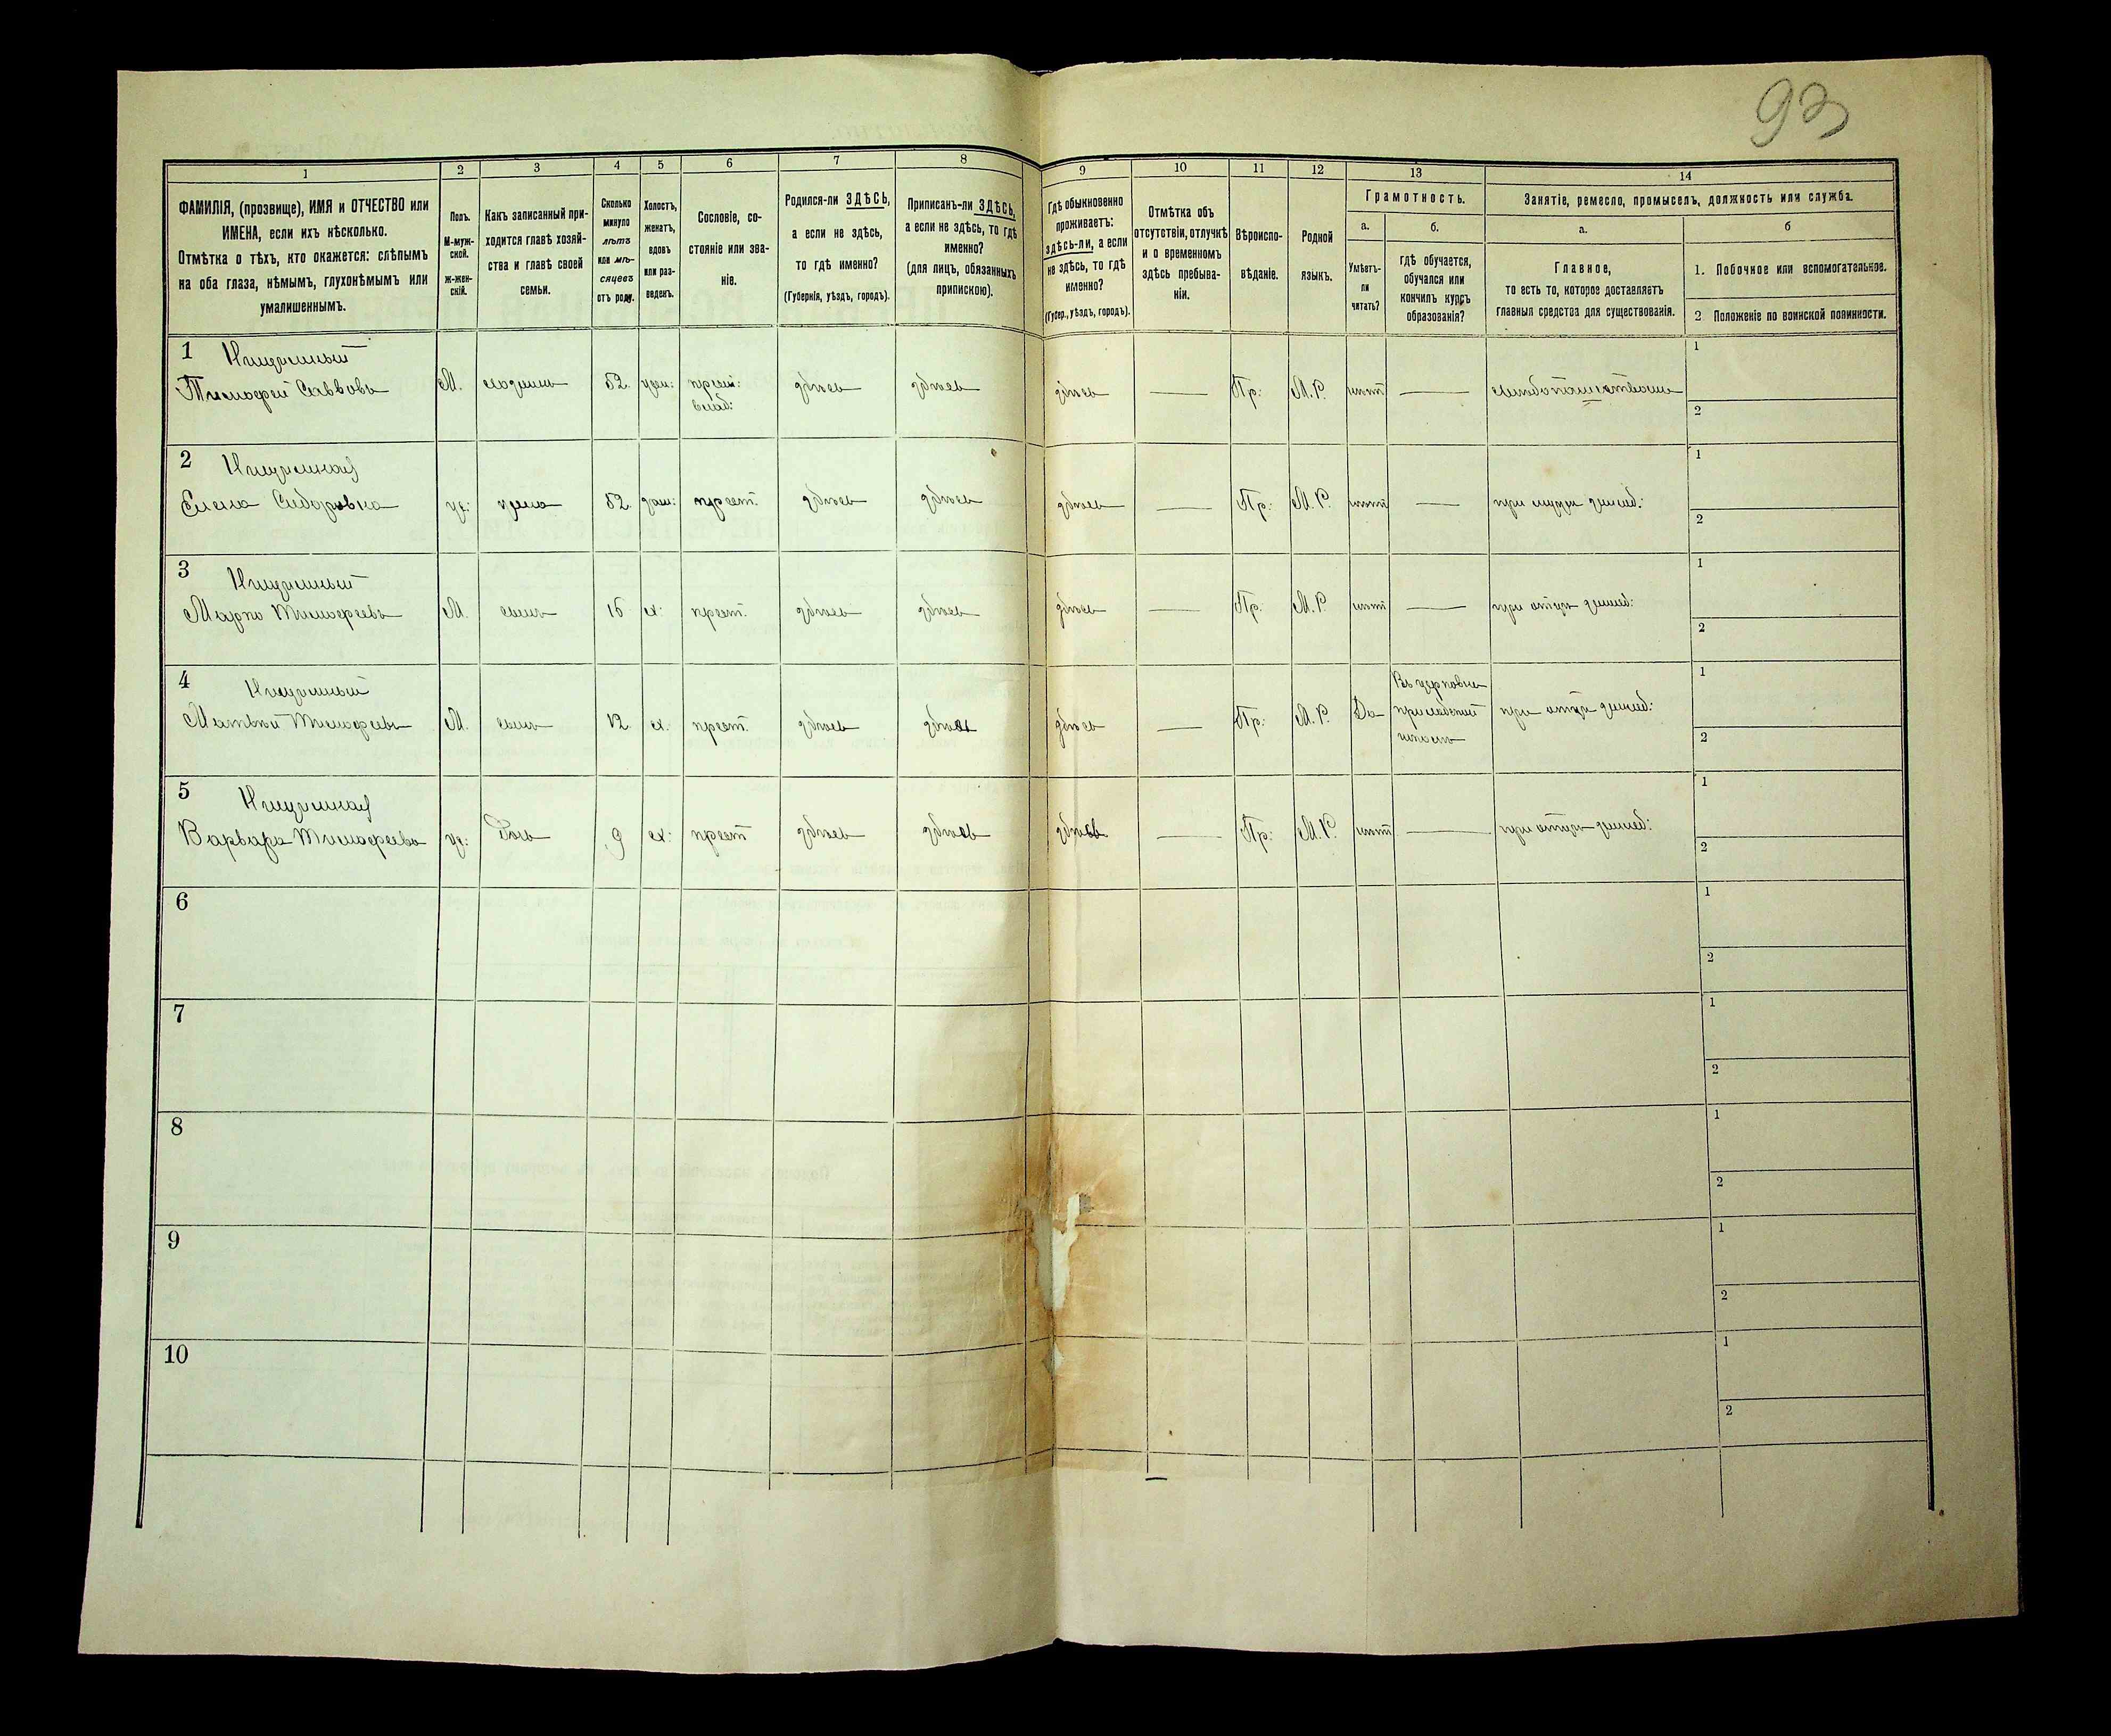 93
1 2 3 4 5 6 7 8 9 10 11 12 13 14
ФАМИЛІЯ, (прозвище), ИМЯ и ОТЧЕСТВО или
ИМЕНА, если ихъ нѣсколько.
Отмѣтка о тѣхъ, кто окажется: слѣпымъ
на оба глаза, нѣмымъ, глухонѣмымъ или
умалишеннымъ.
Полъ.
М-муж-
ской.
Ж-жен-
скій.
Какъ записанный при-
ходится главѣ хозяй-
ства и главѣ своей
семьи.
Сколько
минуло
лѣтъ
или мѣ-
сяцевъ
отъ роду.
Холостъ,
женатъ,
вдовъ
или раз-
веденъ.
Сословіе, со-
стояніе или зва-
ніе.
Родился-ли ЗДѢСЬ,
а если не здѣсь,
то гдѣ именно?
(Губернія, уѣздъ, городъ).
Приписанъ-ли ЗДѢСЬ,
а если не здѣсь, то гдѣ
именно?
(для лицъ, обязанныхъ
припискою).
Гдѣ обыкновенно
проживаетъ:
здѣсь-ли, а если
не здѣсь, то гдѣ
именно?
(Губер., уѣздъ, городъ).
Отмѣтка объ
отсутствіи, отлучкѣ
и о временномъ
здѣсь пребыва-
ніи.
Вѣроиспо-
вѣданіе.
Родной
языкъ.
Грамотность.
а.
Умѣетъ-
ли
читать?
б.
гдѣ обучается,
обучался или
кончилъ курсъ
образованія?
Занятіе, ремесло, промыселъ, должность или служба.
а.
Главное,
то есть то, которое доставляетъ
главныя средства для существованія.
б
1. Побочное или вспомогательное.
2 Положеніе по воинской повинности.
1
Тимофей Савовъ М. хозяинъ 52 жен: крест: здѣсь здѣсь здѣсь — Пр: М.Р. нѣтъ —
влад:
1
2
2
Елена Сидоровна ж: жена 52 зам: крест. здѣсь здѣсь здѣсь — Пр: М.Р. нѣтъ — при мужѣ землед:
1
2
3
Марко Тимофеевъ М. сынъ 16 х: крест. здѣсь здѣсь здѣсь — Пр: М.Р. нѣтъ — при отцѣ землед:
1
2
4
Въ церковно
Матвѣй Тимофеевъ М. сынъ 12 х. крест. здѣсь здѣсь здѣсь — Пр: М.Р. Да приходской при отцѣ землед:
школѣ
1
2
5
Варвара Тимофеева ж: дочь 9 х: крест здѣсь здѣсь здѣсь — Пр: М.Р. нѣтъ — при отцѣ землед:
1
2
6
1
2
7
1
2
8
1
2
9
1
2
10
1
2